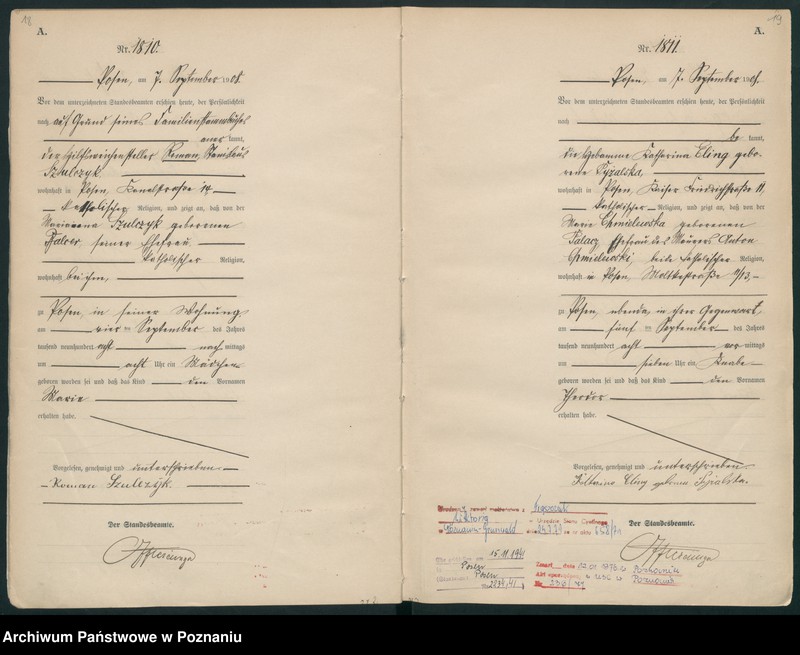 18
A.
Nr. 1810.
Posen, am 7. September 1908.
Vor dem unterzeichneten Standesbeamten erschien heute, der Persönlichkeit
nach auf Grund seines Familienstammbuches
anerkannt,
der Hilfsweichensteller Roman Stanislaus
Szulczyk
wohnhaft in Posen, Kanalstrasse 14
katholischer Religion, und zeigte an, daß von der
Marianna Szulczyk geborenen
seiner Ehefrau
katholischer Religion,
wohnhaft bei ihm,
zu Posen, in seiner Wohnung
am vier ten September des Jahres
tausend neunhundert acht nach mittags
um acht Uhr ein Mädchen
geboren worden sei und daß das Kind den Vornamen
Marie
erhalten habe.
Vorgelesen, genehmigt und unterschrieben
Roman Szulczyk.
Der Standesbeamte.
19
A.
Nr. 1811.
Posen, am 7. September 1908.
Vor dem unterzeichneten Standesbeamten erschien heute, der Persönlichkeit
nach
be kannt,
die Hebamme Katharina Eling gebo-
rene Pyzalska,
wohnhaft in Posen, Kaiser Friedrichstraße 11,
katholischer Religion, und zeigte an, daß von der
Marie Chmielewska geborenen
Palacz, Ehefrau des Maurers Anton
Chmielewski, beide katholischer Religion,
wohnhaft in Posen, Moltkestraße
zu Posen, ebenda, in ihrer Gegenwart,
am fünf ten September des Jahres
tausend neunhundert acht vor mittags
um sieben Uhr ein Knabe
geboren worden sei und daß das Kind den Vornamen
Theodor
erhalten habe.
Vorgelesen, genehmigt und unterschrieben
Eling geborene
Der Standesbeamte.
15.11.1941
Posen
Posen
Zmarł dnia
Poznań
Archiwum Państwowe w Poznaniu